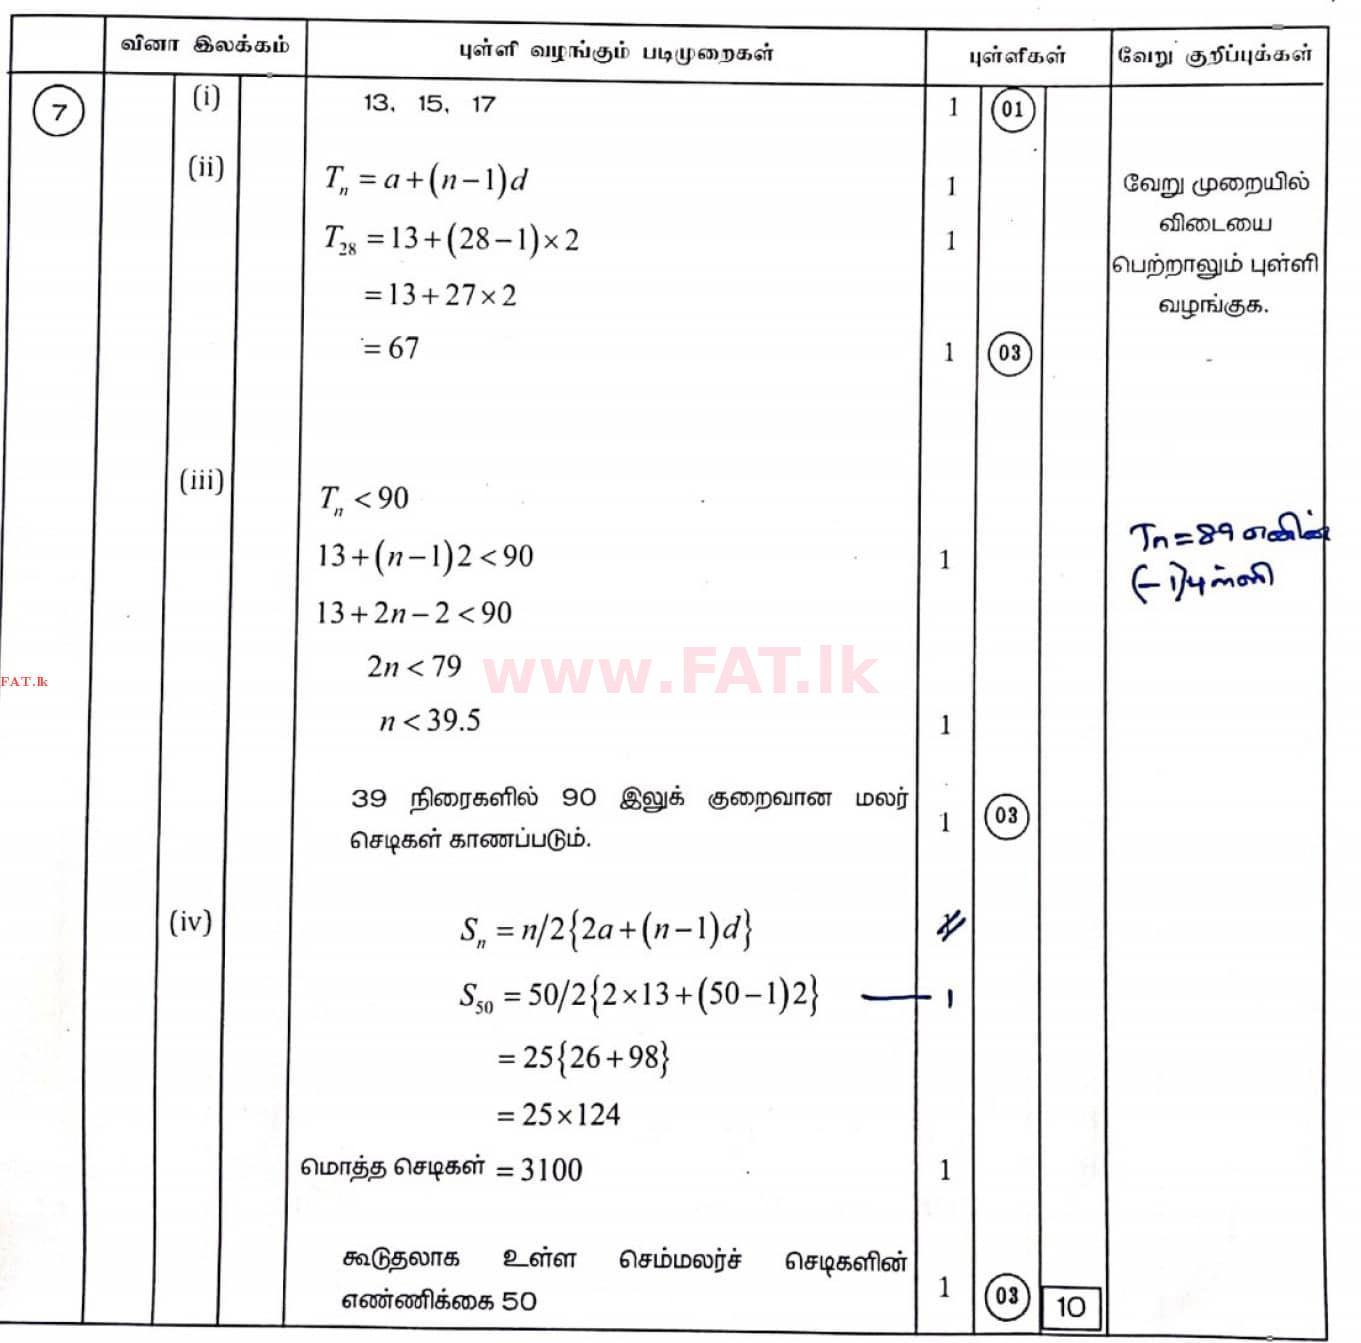 வினா இலக்கம் புள்ளி வழங்கும் படிமுறைகள் புள்ளிகள் வேறு குறிப்புக்கள்
7 (i) 13, 15, 17 1 01
(ii) Tₙ = a + (n − 1)d 1 வேறு முறையில்
விடையை
T₂₈ = 13 + (28 − 1) × 2 1
பெற்றாலும் புள்ளி
= 13 + 27 × 2
வழங்குக.
= 67 1 03
(iii) Tₙ < 90
Tn = 89 எனின்
13 + (n − 1)2 < 90 1
(−1) புள்ளி
13 + 2n − 2 < 90
2n < 79
www.FAT.lk
FAT.lk
n < 39.5 1
39 நிரைகளில் 90 இலுக் குறைவான மலர்
செடிகள் காணப்படும். 1 03
(iv) Sₙ = n/2{2a + (n − 1)d}
S₅₀ = 50/2{2 × 13 + (50 − 1)2} — 1
= 25{26 + 98}
= 25 × 124
மொத்த செடிகள் = 3100 1
கூடுதலாக உள்ள செம்மலர்ச் செடிகளின்
எண்ணிக்கை 50 1 03 10